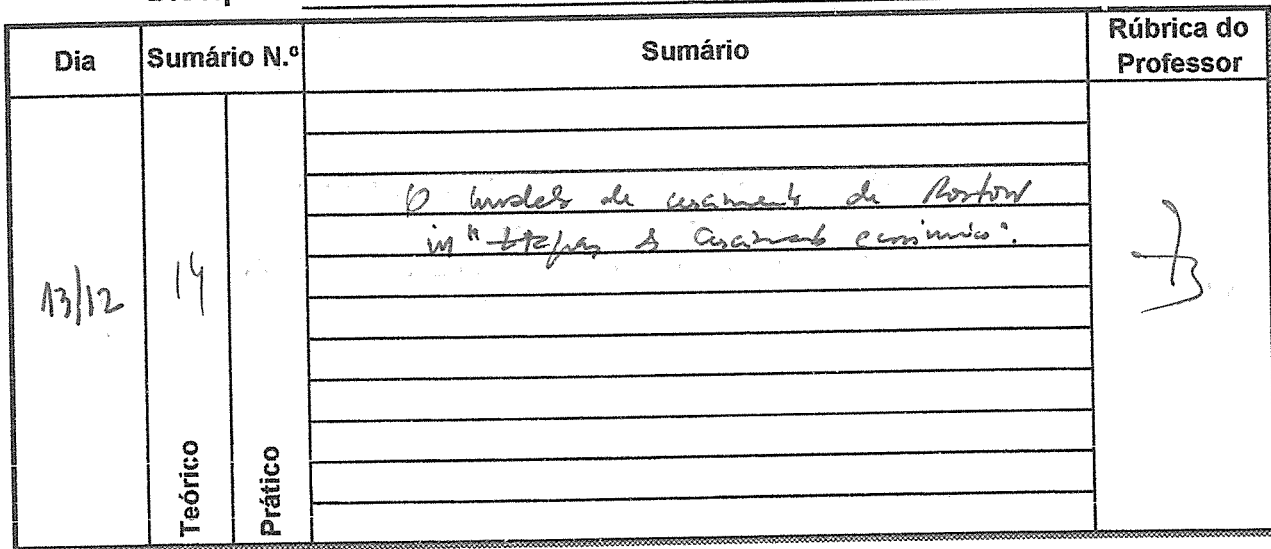 Dia
Sumário N.º
Sumário
Rúbrica do
Professor
13/12
14
Teórico
Prático
O modelo de crescimento de Rostow
in "Etapas do Crescimento económico".